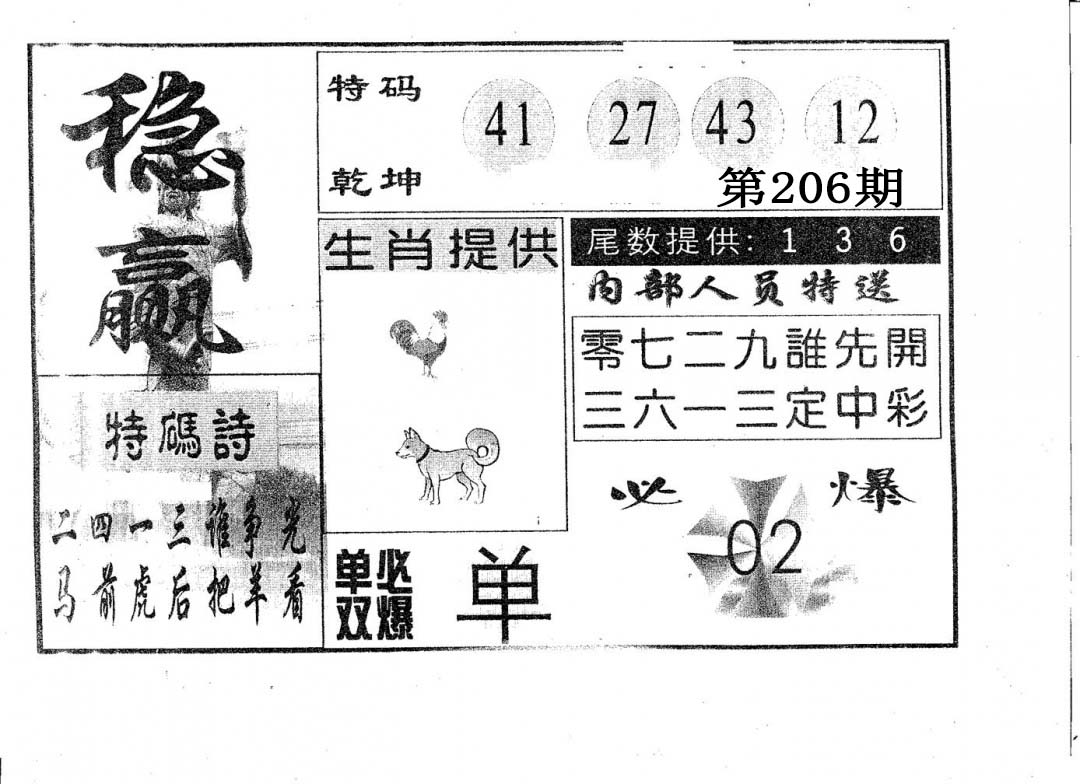 稳
赢
特码
乾坤
41 27 43 12
第206期
生肖提供
尾数提供: 1 3 6
内部人员特送
零七二九誰先開
三六一三定中彩
特碼詩
二四一三谁争光
马前虎后把羊看
必爆
02
单双
必爆
单